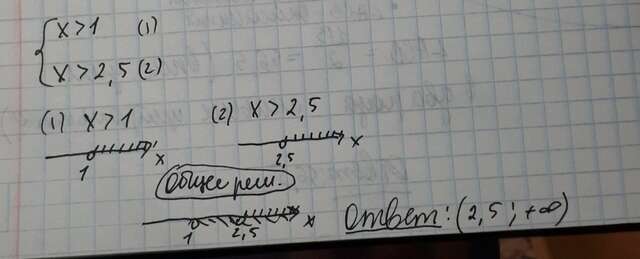 x > 1 (1)
x > 2,5 (2)
(1) x > 1
(2) x > 2,5
1 x
2,5 x
Общее реш.
1 2,5 x
Ответ: (2,5 ; +∞)